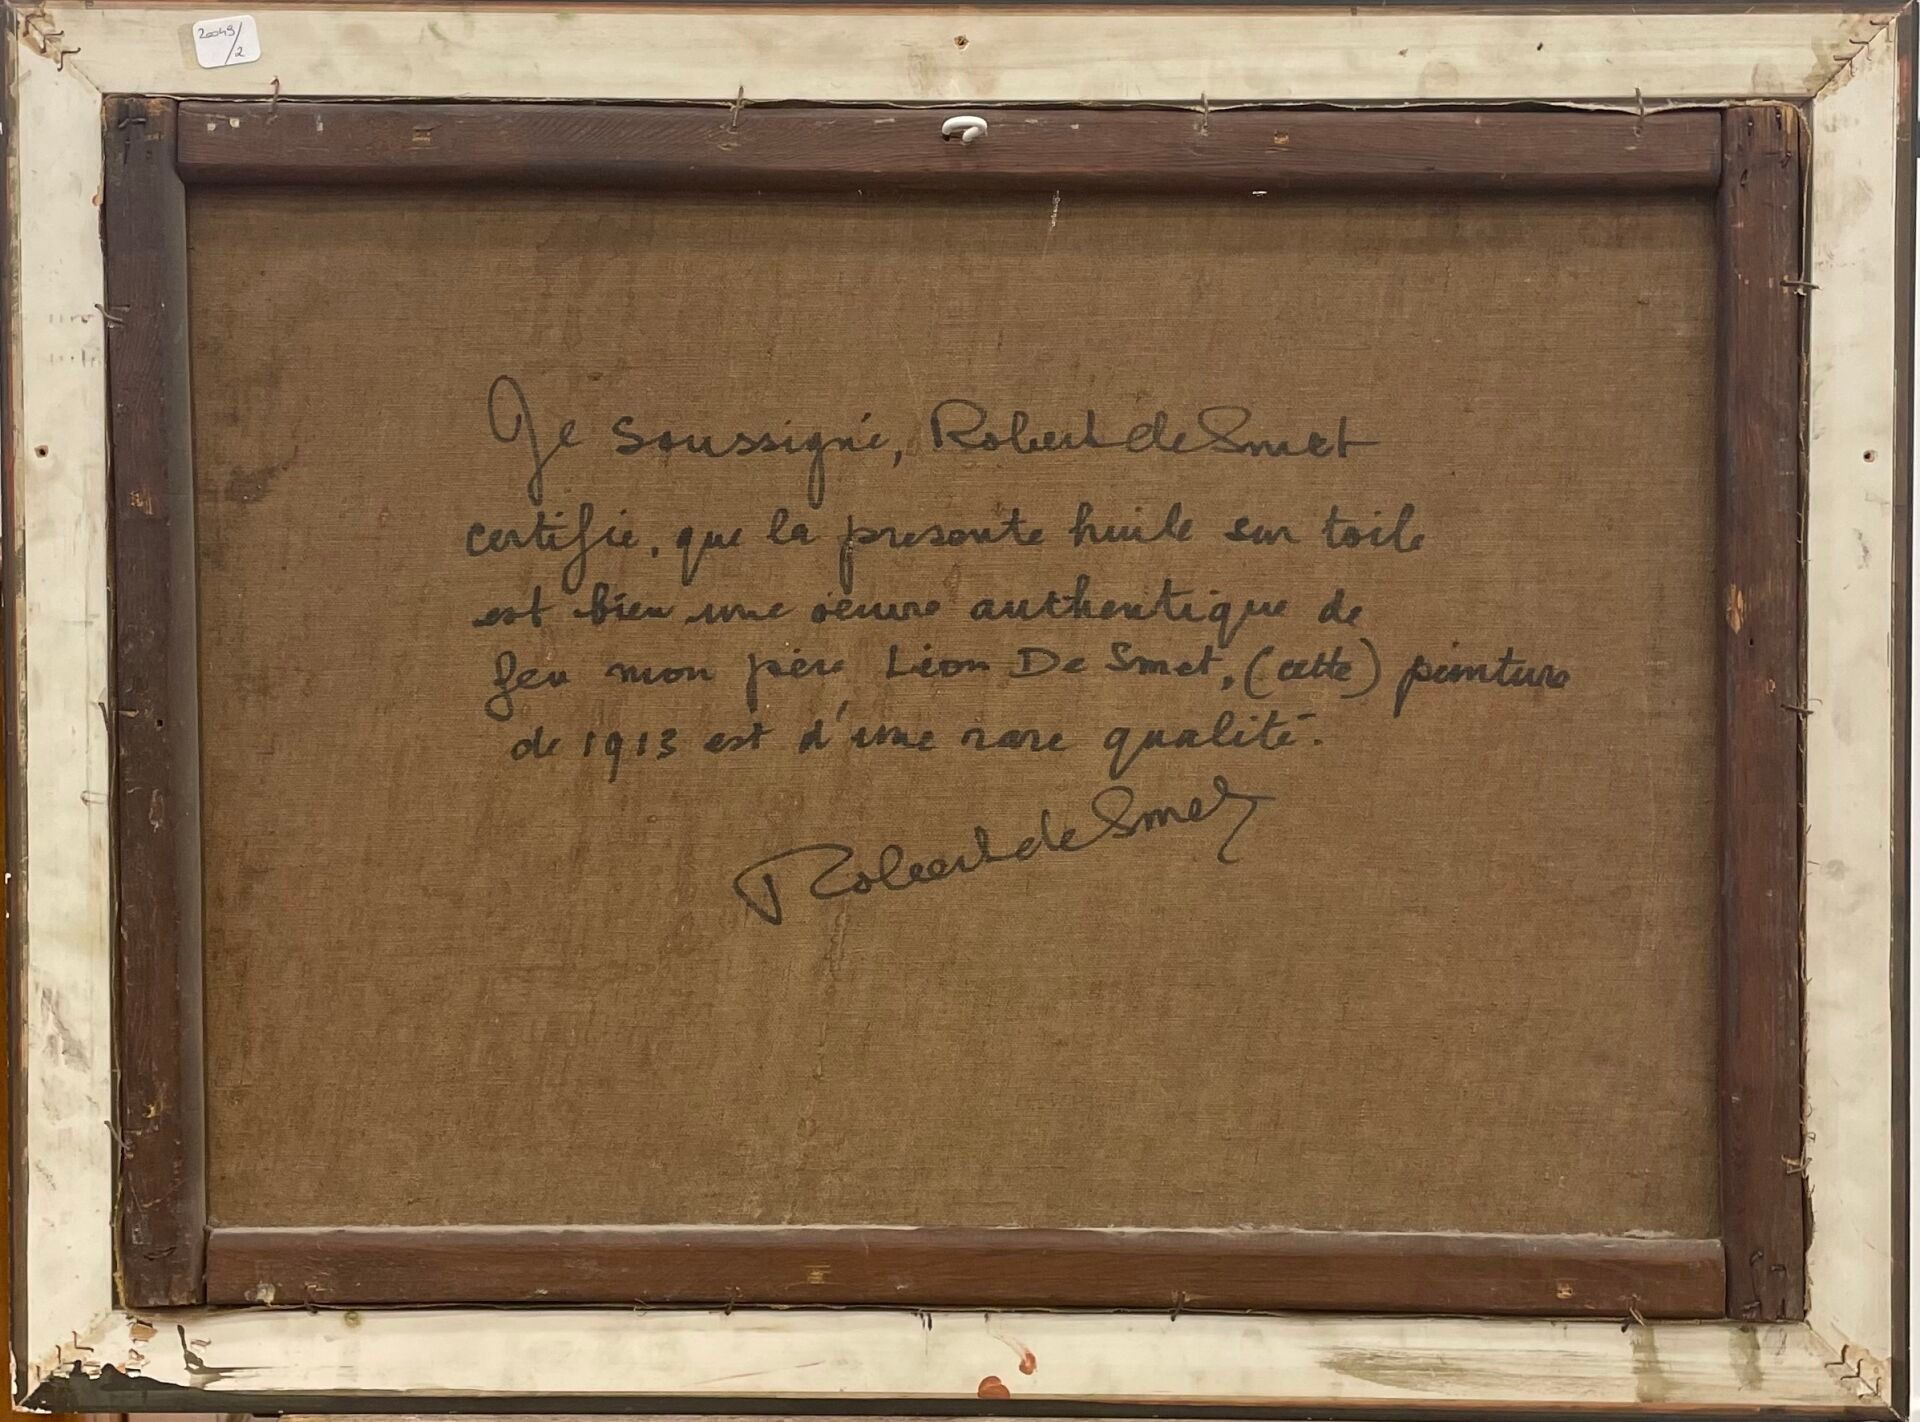 20049/2
Je soussigné, Robert de Smet
certifie, que la presente huile sur toile
est bien une oeuvre authentique de
feu mon père Léon De Smet, (cette) peinture
de 1913 est d'une rare qualité.
Robert de Smet